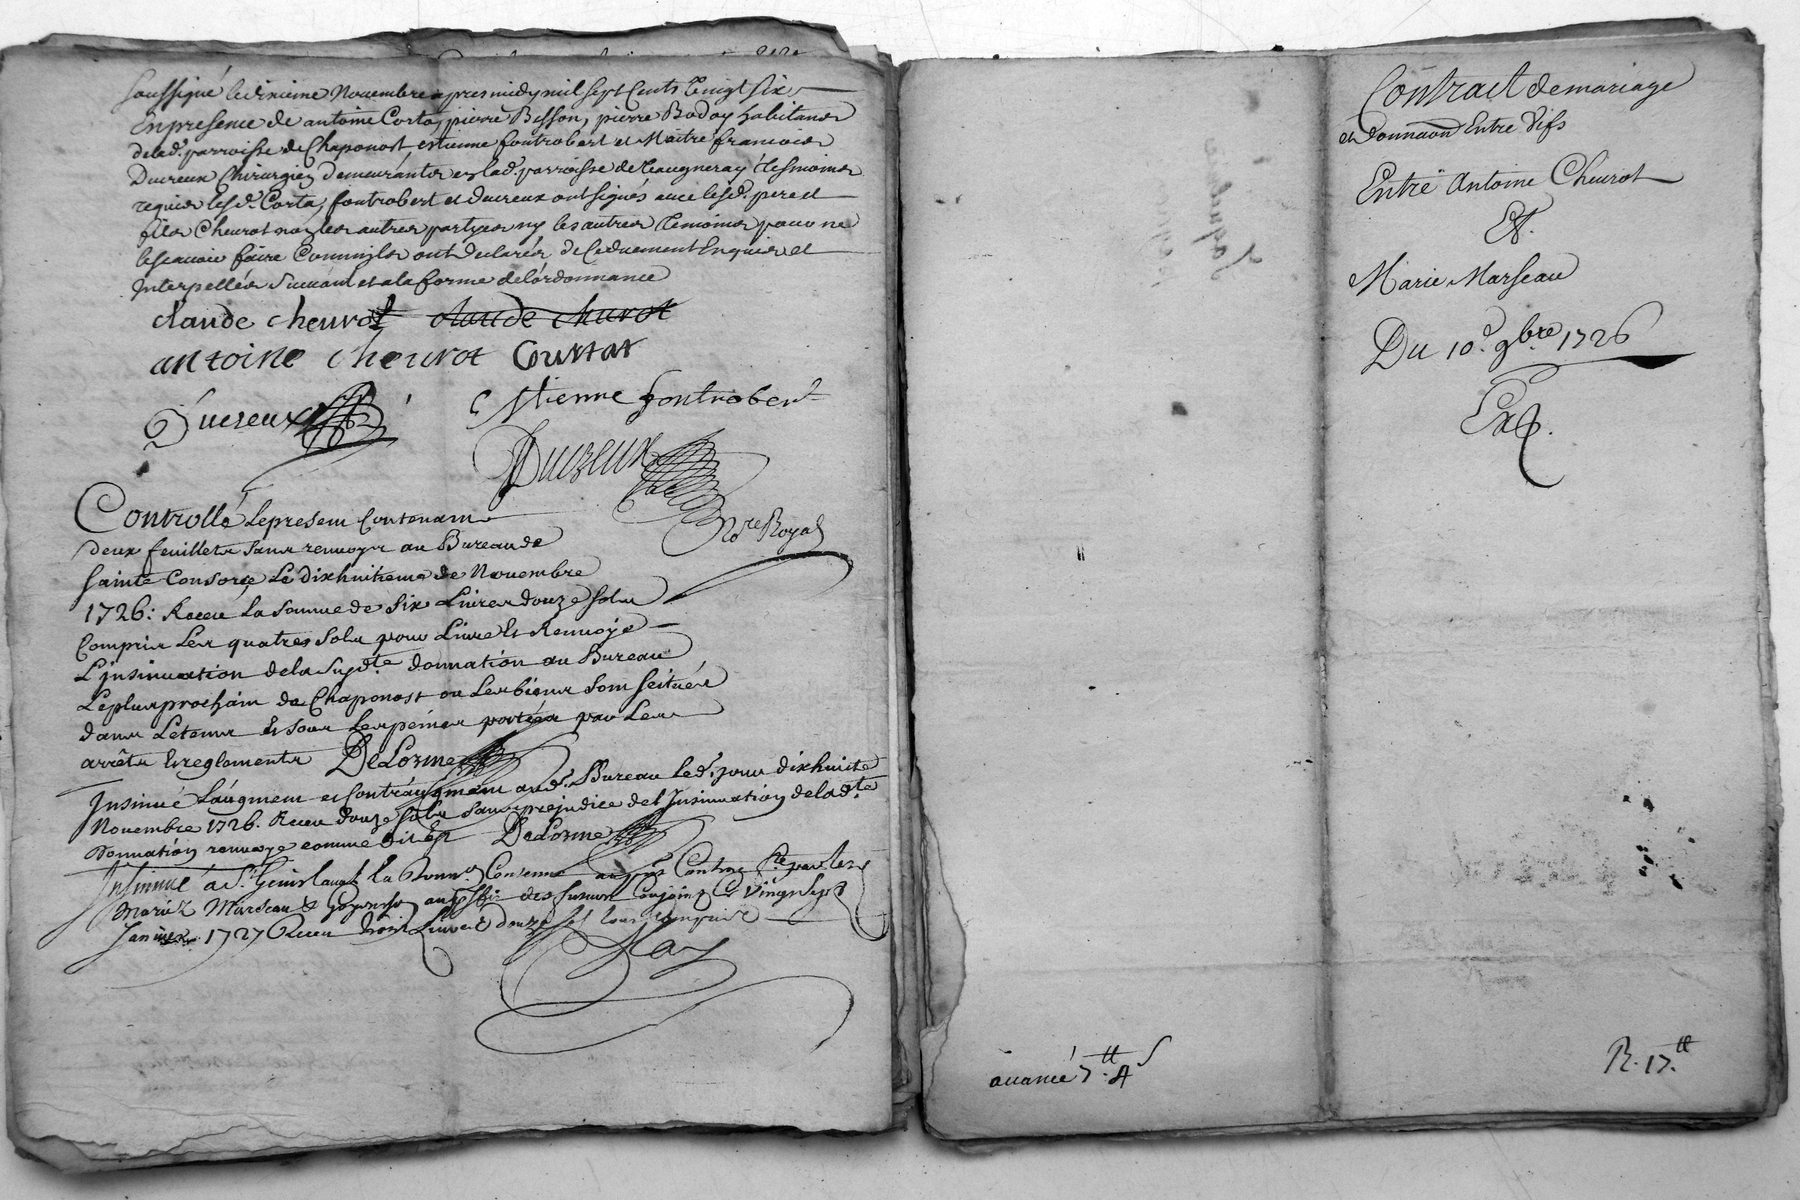 soussigné le dixieme Novembre apres midy mil sept Cents Vingt Six
En presence de antoine Corta, pierre Bisson, pierre Bodoy habitans
de lad. parroisse de Chaponost, estienne fontrobert et Maitre francois
Ducreux Chirurgien demeurantes en lad. parroisse de Vaugneray tesmoins
requis lesd. Corta, fontrobert et ducreux ont signés avec lesd. pere et
fils Cheurot non les autres partyes ny les autres temoins pour ne
le scavoir faire Comm'ils ont declarés de Ce duement Enquis et
Interpellés Suivant et a la forme de lordonnance
claude cheurot claude churot
antoine cheurot Courtat
Ducreux Estienne fontrobert
Ducreux
No.re Royal
Controllé le present Contenant
deux feuillets sans renvoys au Bureau de
sainte Consorce Le dixhuitieme de Novembre
1726: Receu la somme de Six Livres douze sols
Compris Les quatres sols pour Livre Et Renvoyé
L'insinuation de la Susd.te donnation au Bureau
Le plus prochain de Chaponost ou Les biens Sont scitués
dans Le tems Et sous Les peines portées par Les
arrêts Et reglements DeLorme
Insinué L'augment et Contraugment aud. Bureau led. jour dixhuite
Novembre 1726. Receu douze sols sans prejudice de l'Insinuation de lad.te
Donnation renvoyé comme dit Est DeLorme
Insinué à S.t Genis Laval la Donn.on Contenue au
Marie Marseau des Vingt Sept
Janvier 1727 Receu trois Livres douze sols
Contract de mariage
et donnaon Entre Vifs
Entre Antoine Cheurot
Et.
Marie Marseau
Du 10.e 9bre 1726
Ex.
auancé 7.tt 4 s
R. 17.tt